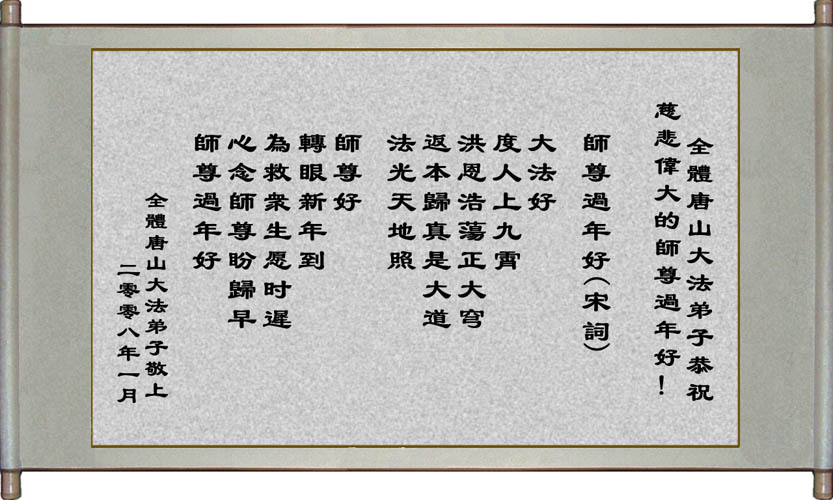 全體唐山大法弟子恭祝
慈悲偉大的師尊過年好！
師尊過年好（宋詞）
大法好
度人上九霄
洪恩浩蕩正大穹
返本歸真是大道
法光天地照
師尊好
轉眼新年到
為救衆生愿时遲
心念師尊盼歸早
師尊過年好
全體唐山大法弟子敬上
二零零八年一月